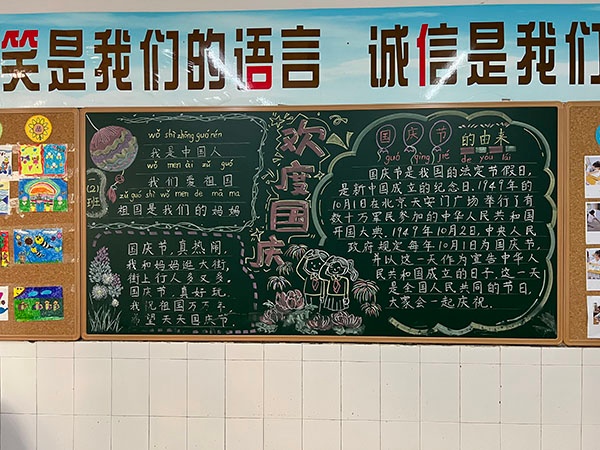 笑是我们的语言 诚信是我们
wǒ shì zhōng guó rén
我是中国人
wǒ men ài zǔ guó
我们爱祖国
zǔ guó shì wǒ men de mā ma
祖国是我们的妈妈
(2)
班
国庆节,真热闹,
我和妈妈逛大街,
街上行人多又多。
国庆节,真好玩,
我祝祖国万万岁,
希望天天国庆节
欢度国庆
国庆节的由来
guó qìng jié de yóu lái
国庆节是我国的法定节假日,
是新中国成立的纪念日。1949年的
10月1日在北京天安门广场举行了有
数十万军民参加的中华人民共和国
开国大典。1949年10月2日,中央人民
政府规定每年10月1日为国庆节,
并以这一天作为宣告中华人
民共和国成立的日子。这一天
是全国人民共同的节日,
大家会一起庆祝。